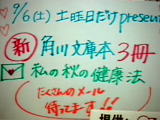 9/6(土)土曜日だけpresent
新 角川文庫本3冊
私の秋の健康法
たくさんのメール
待ってます!!
提供: